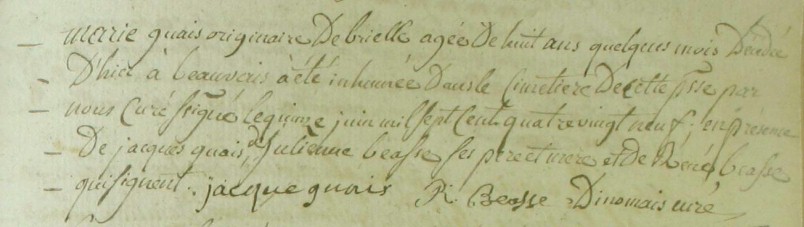 marie quais originaire De brielle agée De huit ans quelques mois Décédée
D'hier à beauvais à été inhumée Dans le Cimetiere De cette psse par
nous Curé ssigné le quinze juin mil sept Cent quatre vingt neuf; en présence
De jacques quais, & Julienne beasse ses pere et mere et De René beasse
qui signent. jacque quais R. Beasse Dinomais curé